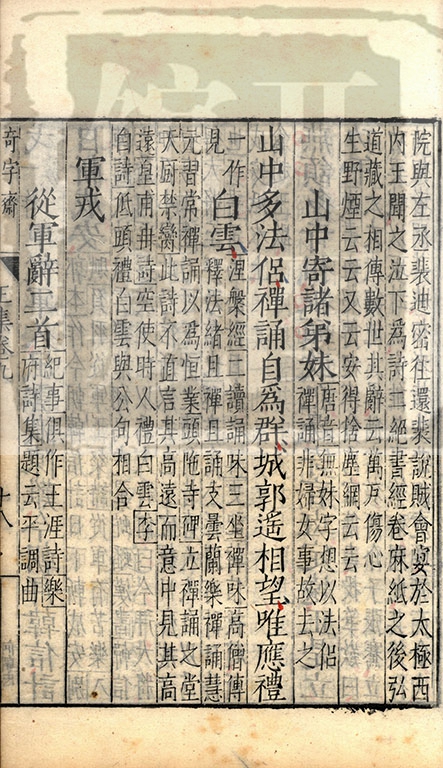 院與左丞裴迪密往還裴說賊會宴於太極西
內王聞之泣下爲詩二絕書經卷麻紙之後弘
道藏之相傳數世其辭云萬戶傷心
生野煙云云又云安得捨塵網云云
山中寄諸弟妹
唐音無妹字想以法侶
禪誦非婦女事故去之
山中多法侶禪誦自爲群城郭遙相望唯應禮
一作
見
白雲
涅槃經三讀誦味三坐禪味高僧傳
釋法緒且禪且誦支曇蘭樂禪誦慧
元習常禪誦以爲恒業頭陁寺碑立禪誦之堂
大厨禁臠此詩不直言其高遠而意中見其高
遠皇甫冉詩空使時人禮白雲李
白詩低頭禮白雲與公句相合
軍戎
從軍辭首
紀事俱作王涯詩樂
府詩集題云平調曲
奇字齋
王集卷九
十八